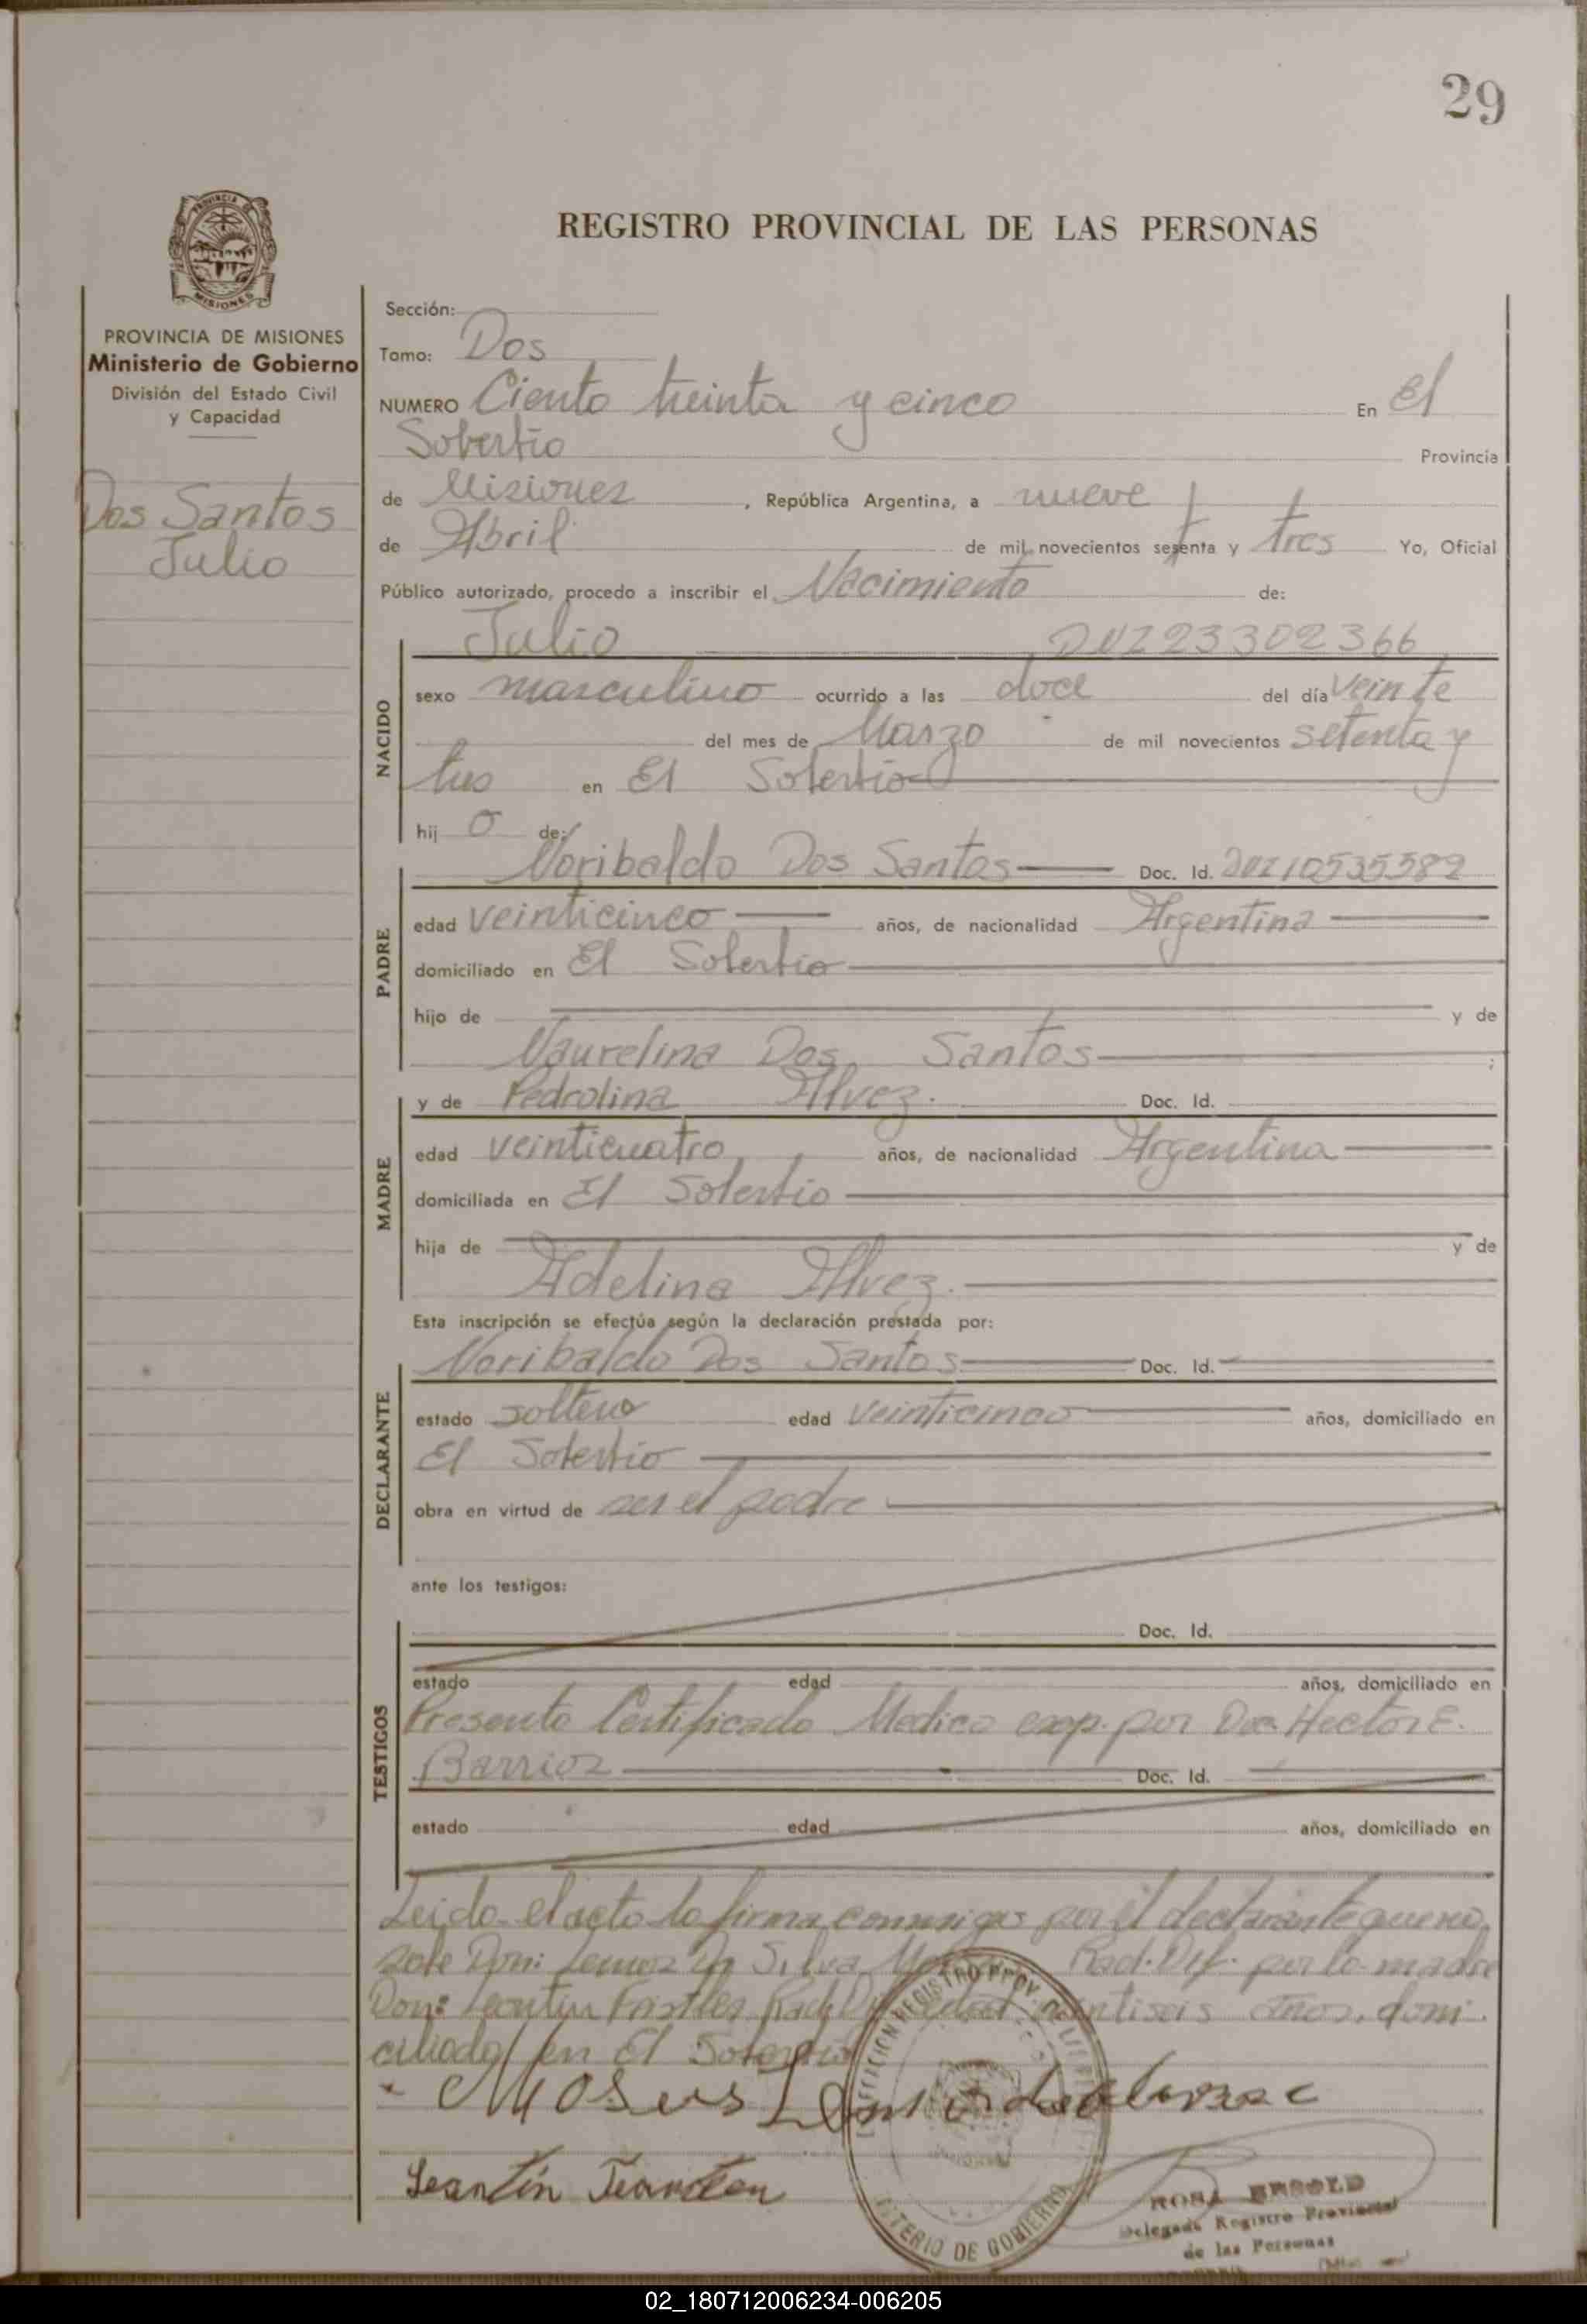 29
PROVINCIA DE MISIONES
Ministerio de Gobierno
División del Estado Civil
y Capacidad
Dos Santos
Julio
REGISTRO PROVINCIAL DE LAS PERSONAS
Sección:
Tomo: Dos
NUMERO Ciento treinta y cinco En El
Sobertio Provincia
de Misiones, República Argentina, a nueve
de Abril de mil novecientos setenta y tres Yo, Oficial
Público autorizado, procedo a inscribir el Nacimiento de:
NACIDO
Julio DNI 23302366
sexo masculino ocurrido a las doce del día veinte
del mes de Marzo de mil novecientos setenta y
tres en El Sobertio
hijo de:
PADRE
Noribaldo Dos Santos Doc. Id. DNI 10535582
edad veinticinco años, de nacionalidad Argentina
domiciliado en El Sobertio
hijo de y de
Naurelina Dos Santos ;
MADRE
y de Pedrolina Alvez. Doc. Id.
edad veinticuatro años, de nacionalidad Argentina
domiciliada en El Sobertio
hija de y de
Adelina Alvez.
Esta inscripción se efectúa según la declaración prestada por:
DECLARANTE
Noribaldo Dos Santos Doc. Id.
estado soltero edad veinticinco años, domiciliado en
El Sobertio
obra en virtud de ser el padre
ante los testigos:
TESTIGOS
Doc. Id.
estado edad años, domiciliado en
Presento Certificado Medico exp. por Doc. Hector E.
Barrios Doc. Id.
estado edad años, domiciliado en
Leido el acto lo firma conmigo por el declarante que no
sabe Don: Da Silva por la madre
Don: edad veintiseis años, domi
ciliado en El Sobertio
MINISTERIO DE GOBIERNO
ROSA
Delegada Registro Provincial
de las Personas
02_180712006234-006205